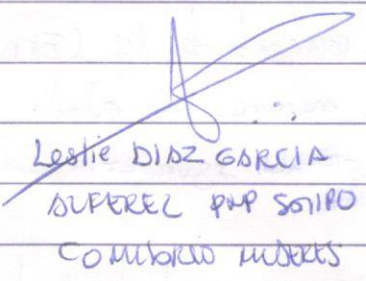 Leslie DIAZ GARCIA
ALFEREZ PNP SATIPO
COMISARIO MUJERES